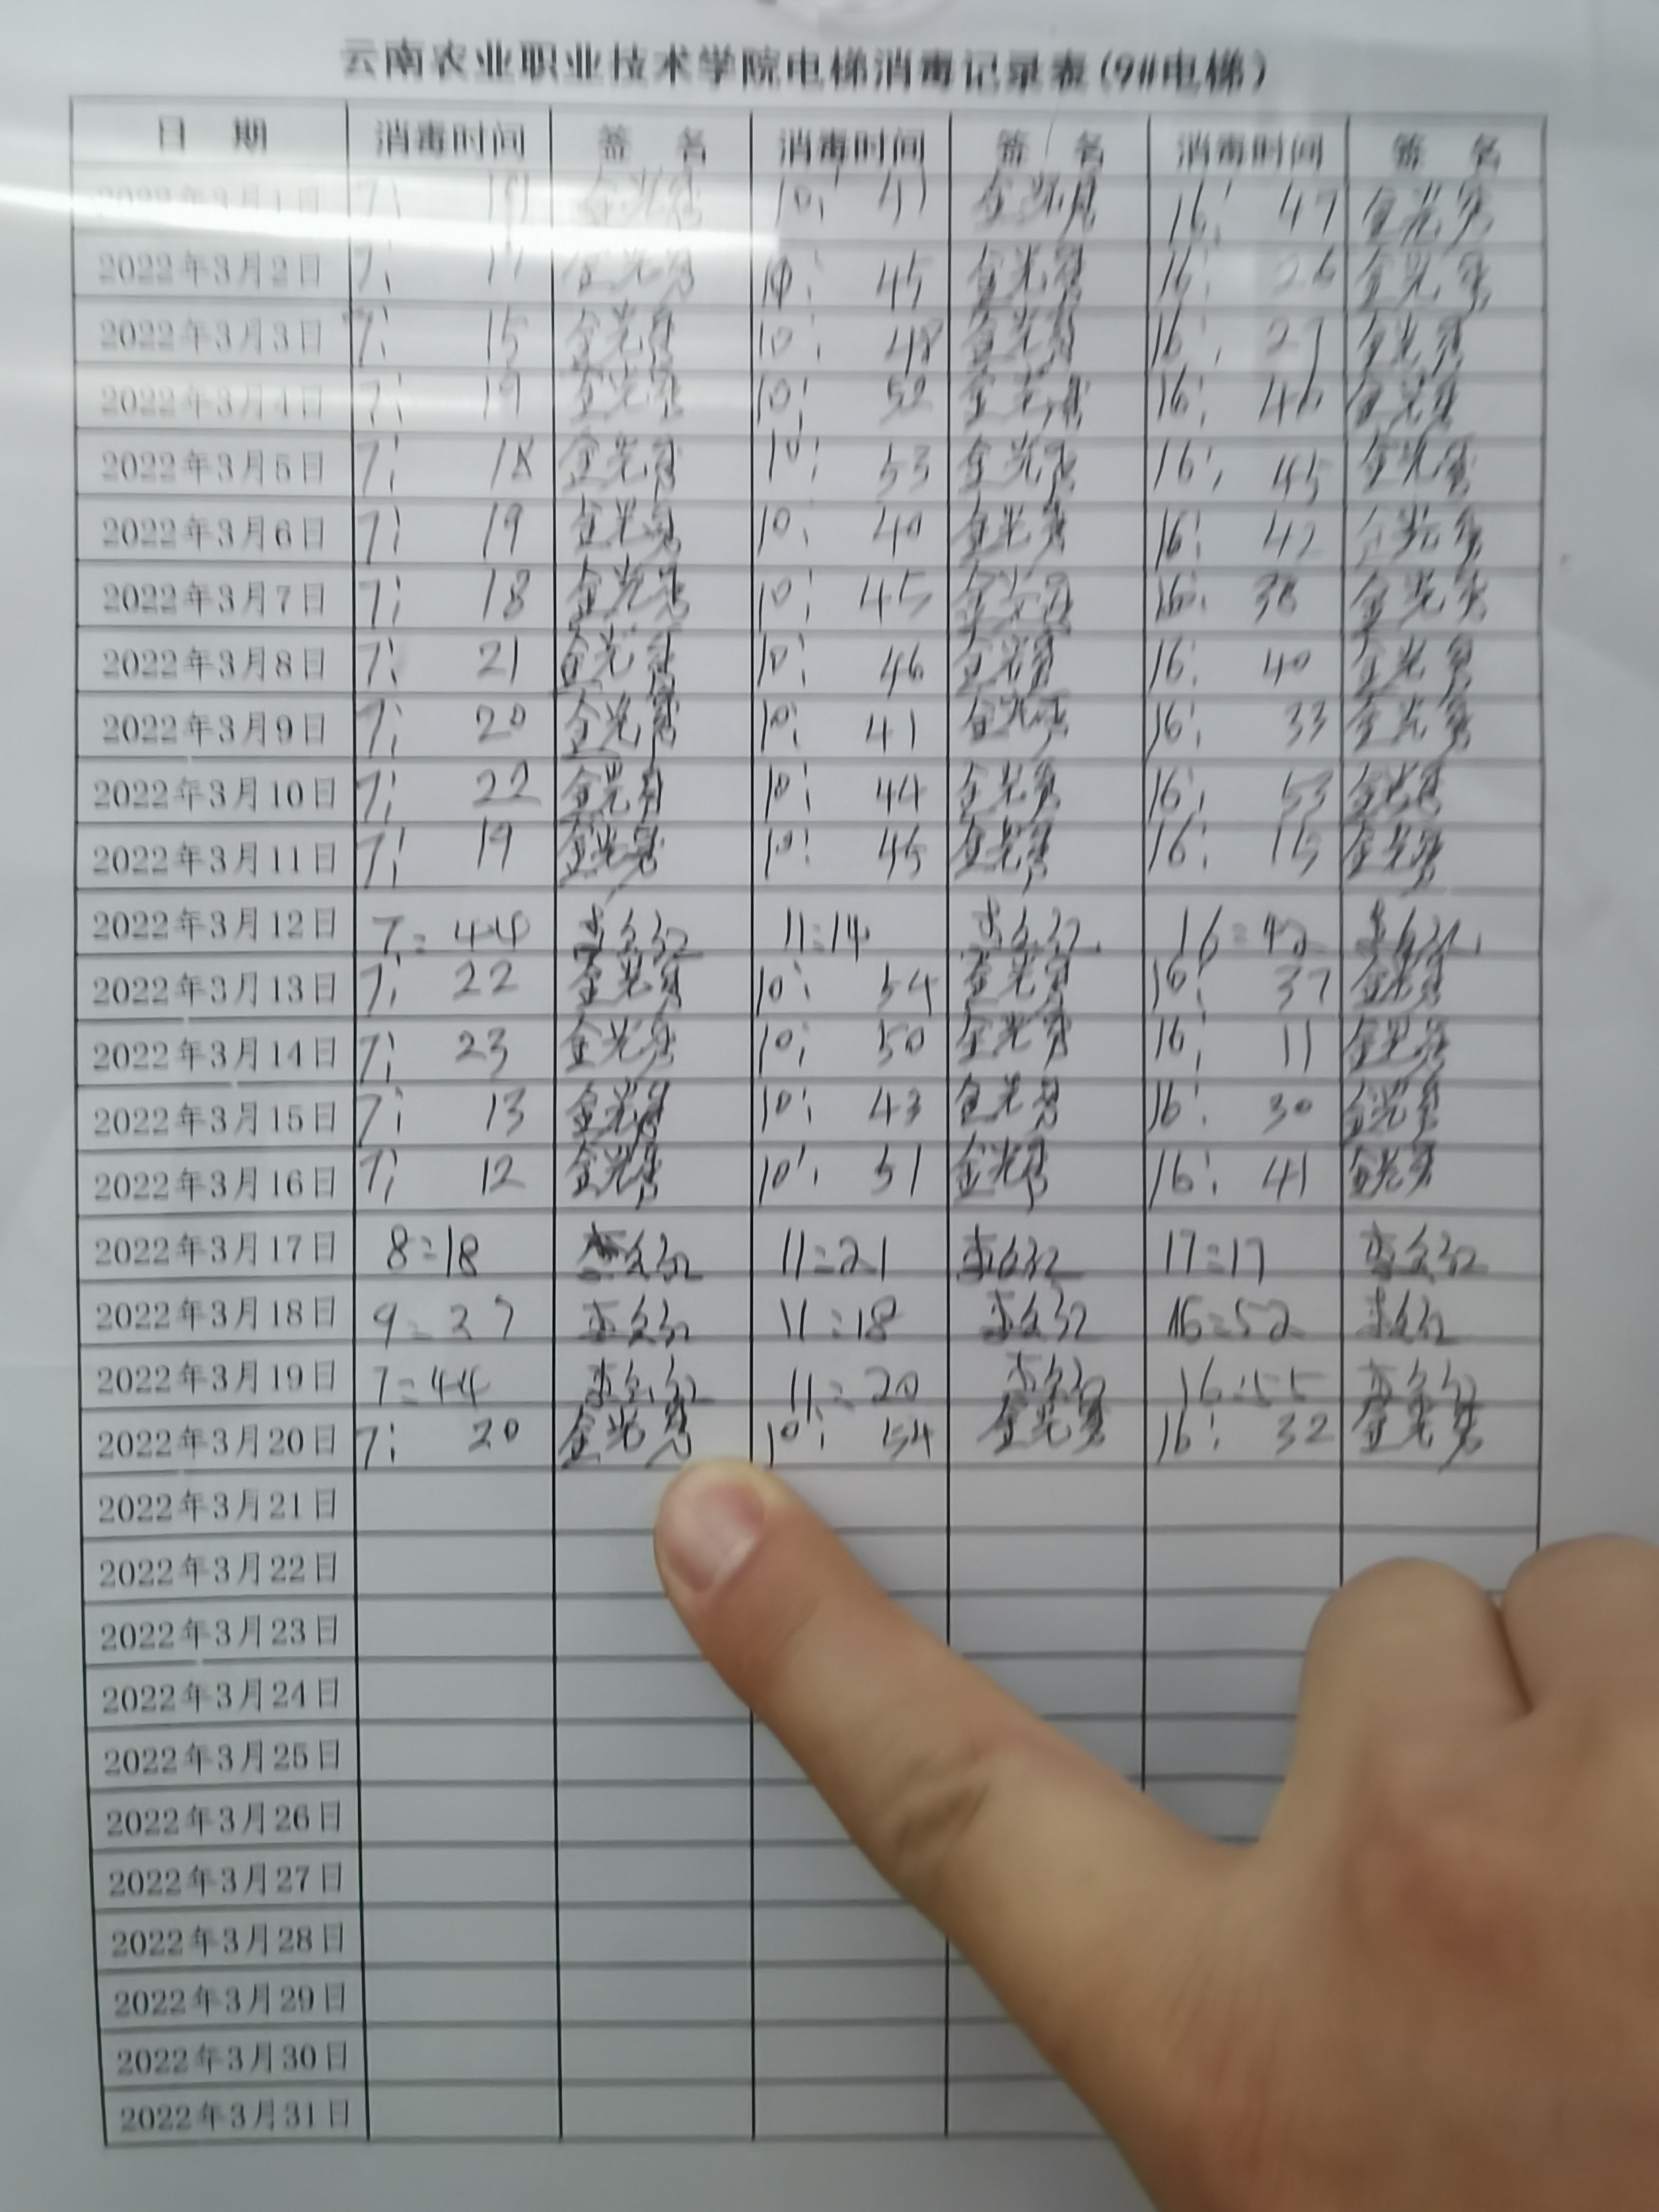 云南农业职业技术学院电梯消毒记录表(9#电梯)
日 期 消毒时间 签 名 消毒时间 签 名 消毒时间 签 名
2022年3月1日 7: 金光秀 10: 47 金光秀 16: 47 金光秀
2022年3月2日 7: 金光秀 10: 45 金光秀 16: 26 金光秀
2022年3月3日 7: 15 金光秀 10: 48 金光秀 16: 27 金光秀
2022年3月4日 7: 19 金光秀 10: 52 金光秀 16: 46 金光秀
2022年3月5日 7: 18 金光秀 10: 53 金光秀 16: 45 金光秀
2022年3月6日 7: 19 金光秀 10: 40 金光秀 16: 42 金光秀
2022年3月7日 7: 18 金光秀 10: 45 金光秀 16: 38 金光秀
2022年3月8日 7: 21 金光秀 10: 46 金光秀 16: 40 金光秀
2022年3月9日 7: 20 金光秀 10: 41 金光秀 16: 33 金光秀
2022年3月10日 7: 22 金光秀 10: 44 金光秀 16: 53 金光秀
2022年3月11日 7: 19 金光秀 10: 45 金光秀 16: 15 金光秀
2022年3月12日 7:44 11:14 16:42
2022年3月13日 7: 22 金光秀 10: 54 金光秀 16: 37 金光秀
2022年3月14日 7: 23 金光秀 10: 50 金光秀 16: 11 金光秀
2022年3月15日 7: 13 金光秀 10: 43 金光秀 16: 30 金光秀
2022年3月16日 7: 12 金光秀 10: 51 金光秀 16: 41 金光秀
2022年3月17日 8:18 11:21 17:17
2022年3月18日 9:27 11:18 16:52
2022年3月19日 7:44 11:20 16:55
2022年3月20日 7: 20 金光秀 10: 54 金光秀 16: 32 金光秀
2022年3月21日
2022年3月22日
2022年3月23日
2022年3月24日
2022年3月25日
2022年3月26日
2022年3月27日
2022年3月28日
2022年3月29日
2022年3月30日
2022年3月31日